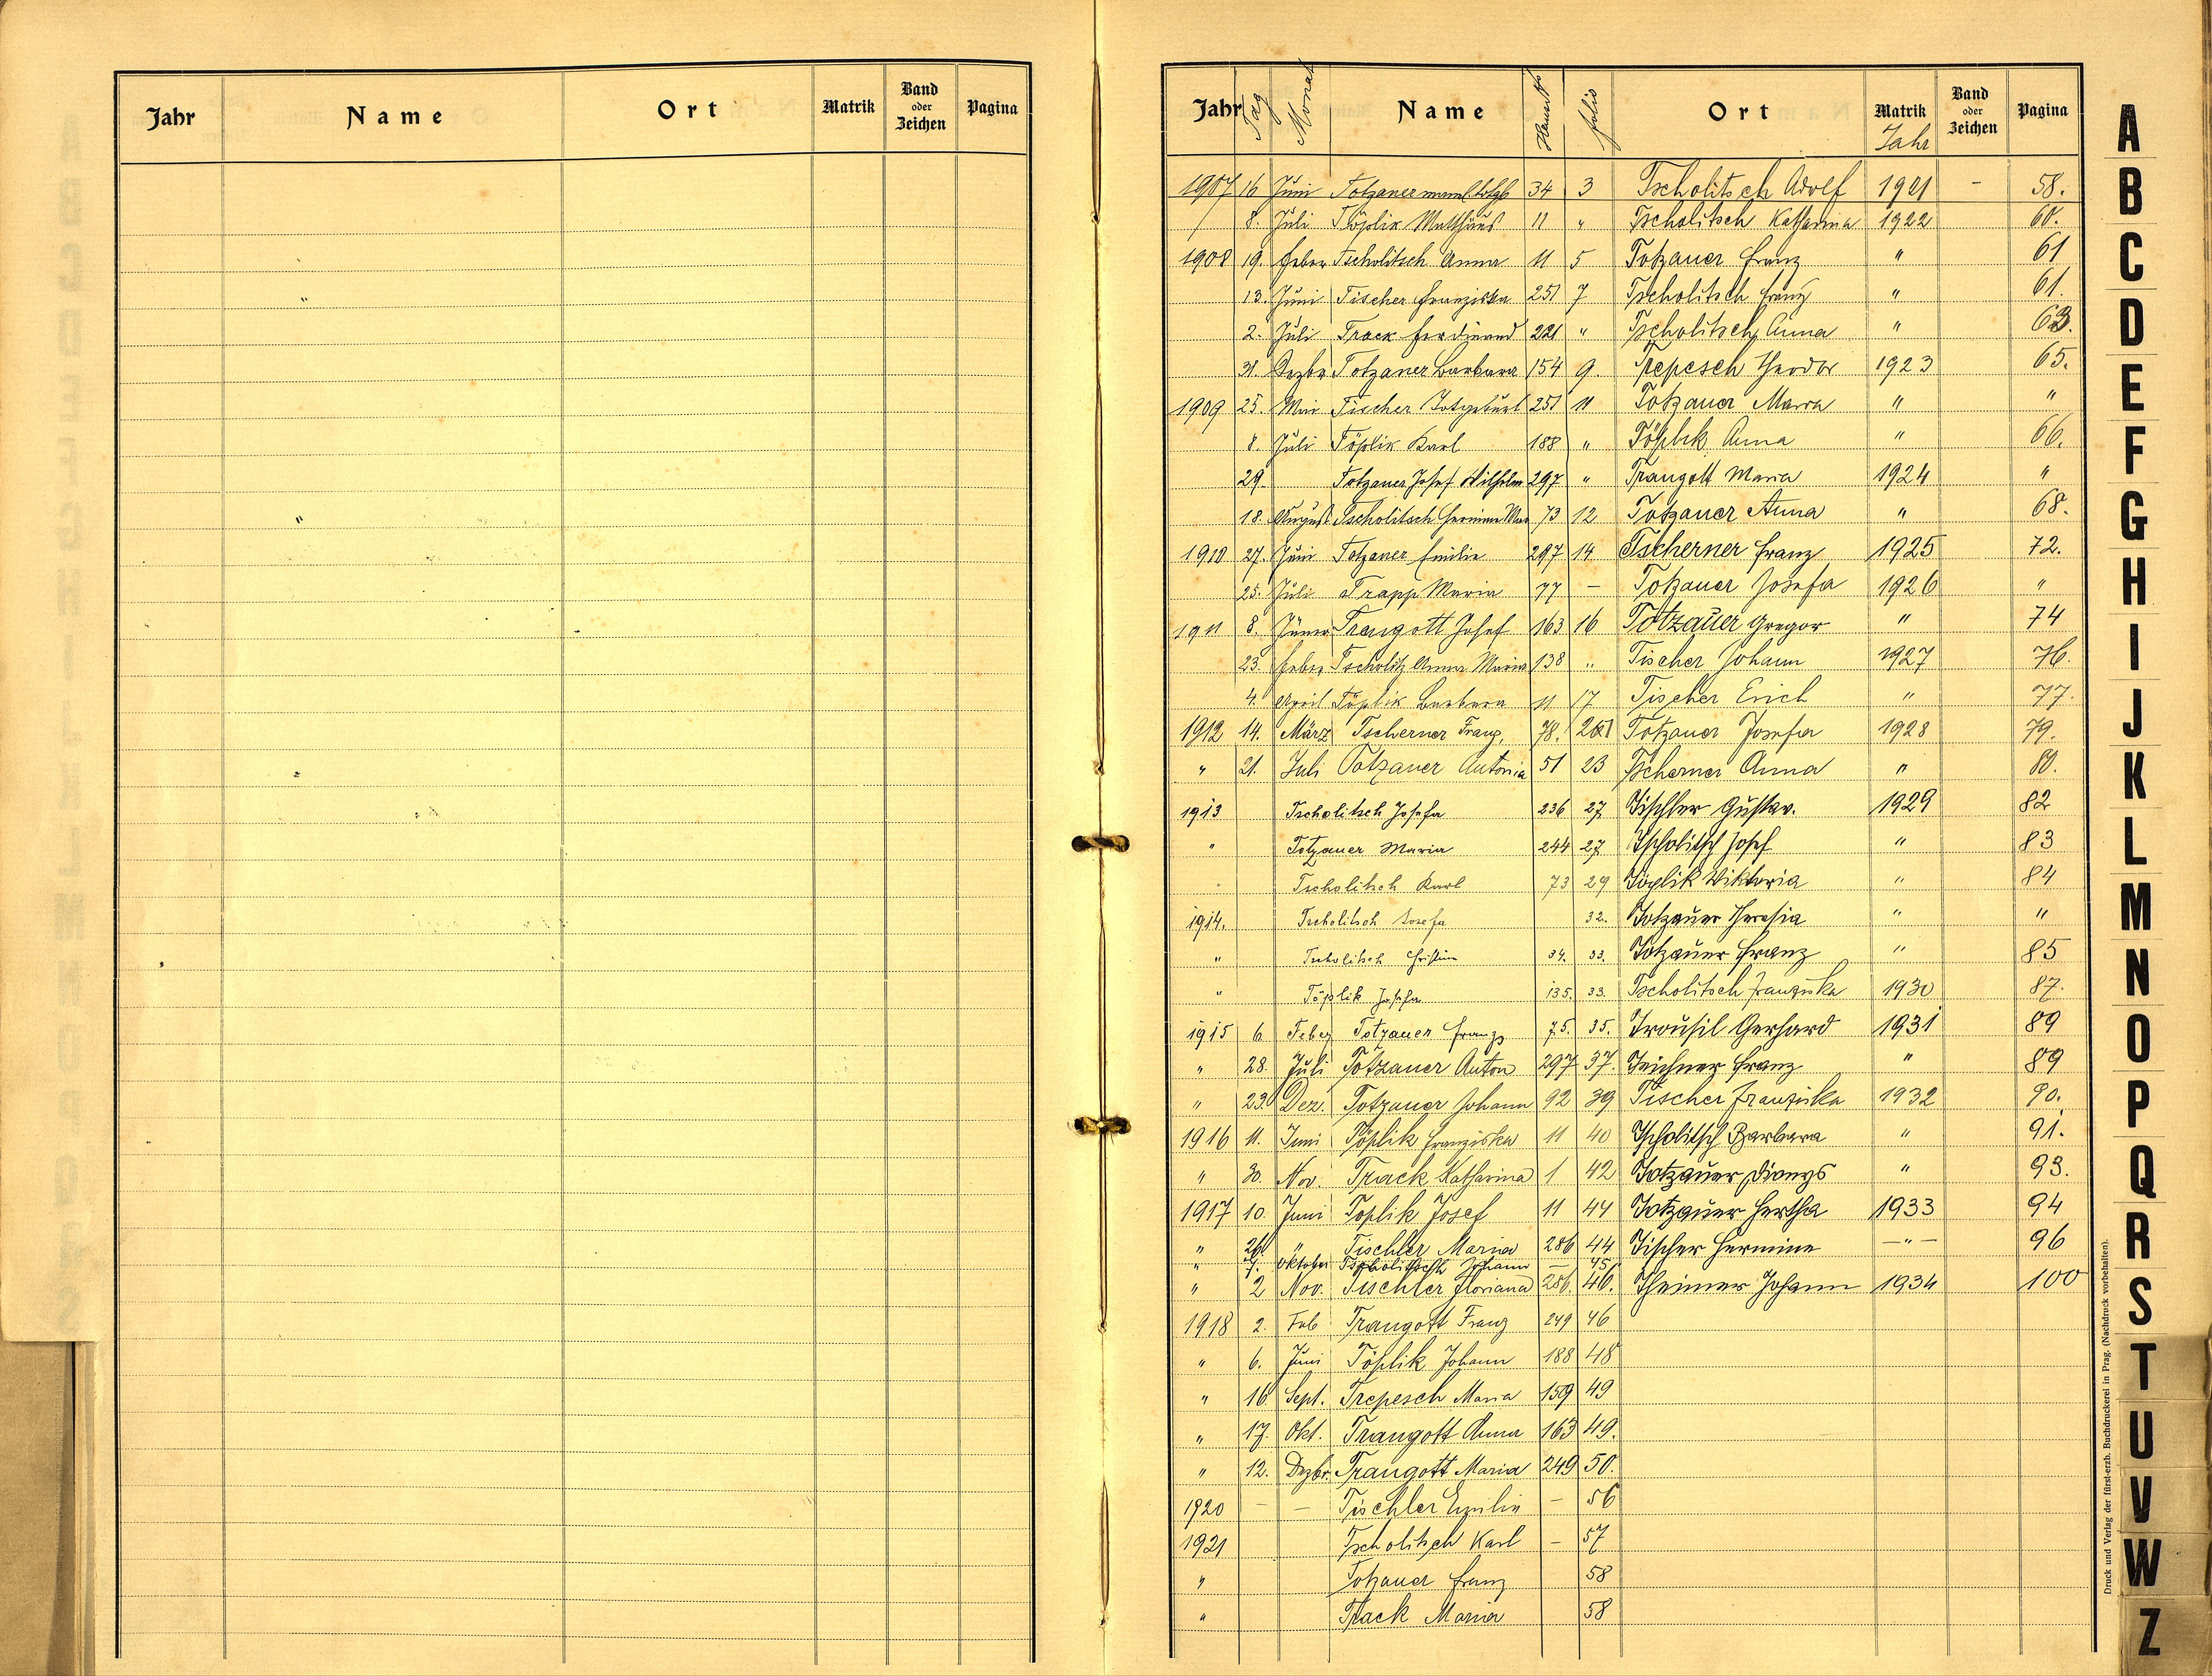 Jahr Name Ort Matrik Band oder Zeichen Pagina
Jahr Tag Monat Name Hausnr folio Ort Matrik Jahr Band oder Zeichen Pagina
1907 16 Juni Totzauer 34 3 Tscholitsch Adolf 1921 - 58.
8. Juli Töplik Matthäus 11 " Tscholitsch Katharina 1922 60.
1908 19. Feber Tscholitsch Anna 11 5 Totzauer Franz " 61
13. Juni Tischer Franziska 251 7 Tscholitsch Franz " 61.
2. Juli Track Ferdinand 221 " Tscholitsch Anna " 63.
31. Dezbr Totzauer Barbara 154 9. Trepesch Theodor 1923 65.
1909 25. Mai Tischer Totgeburt 251 11 Totzauer Maria " "
8. Juli Töplik Karl 188 " Töplik Anna " 66.
29. Totzauer Josef Wilhelm 297 " Traugott Maria 1924 "
18. August Tscholitsch 73 12 Totzauer Anna " 68.
1910 27. Juni Totzauer Emilie 297 14 Tscherner Franz 1925 72.
25. Juli Trapp Maria 77 - Totzauer Josefa 1926 "
1911 8. Jäner Traugott Josef 163 16 Totzauer Gregor " 74
23. Feber Tscholitz Anna Maria 138 " Tischer Johann 1927 76.
4. April Töplik Barbara 11 17 Tischer Erich " 77.
1912 14. März Tscherner Franz. 78. Totzauer Josefa 1928 79.
" 21. Juli Totzauer Antonia 51 23 Tscherner Anna " 80.
1913 Tscholitsch Josefa 236 27 Tischler Gustav. 1929 82
" Totzauer Maria 244 27 Tscholitsch Josef " 83
" Tscholitsch Karl 73 29 Töplik Viktoria " 84
1914. Tscholitsch Josefa 32. Totzauer Theresia " "
" Tscholitsch Christine 34. 33. Totzauer Franz " 85
" Töplik Josefa 135. 33. Tscholitsch Franziska 1930 87.
1915 6 Feber Totzauer Franz 75. 35. Trousil Gerhard 1931 89
" 28. Juli Totzauer Anton 297 37. Teichner Franz " 89
" 23. Dez. Totzauer Johann 92 39 Tischer Franziska 1932 90.
1916 11. Juni Töplik Franziska 11 40 Tscholitsch Barbara " 91.
" 30. Nov. Track Katharina 1 42 Totzauer Dionys " 93.
1917 10. Juni Töplik Josef 11 44 Totzauer Hertha 1933 94
" 26. " Tischler Maria 286 44 Tischer Hermine -"- 96
" 7. Oktober Tscholitsch Johann - 45
" 2 Nov. Tischler Floriana 286. 46. Theimer Johann 1934 100
1918 2. Feb Traugott Franz 249 46
" 6. Juni Töplik Johann 188 48
" 16 Sept. Trepesch Maria 159 49
" 17. Okt. Traugott Anna 163 49.
" 12. Dezbr. Traugott Maria 249 50.
1920 - - Tischler Emilie - 56
1921 Tscholitsch Karl - 57
" Totzauer Franz 58
" Track Maria 58
Druck und Verlag der fürst-erzb. Buchdruckerei in Prag. (Nachdruck vorbehalten).
A
B
C
D
E
F
G
H
I
J
K
L
M
N
O
P
Q
R
S
T
U
V
W
Z